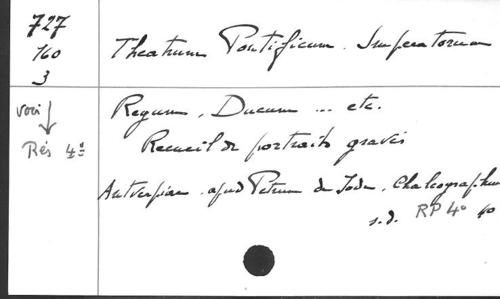 727
160
3
Theatrum Pontificum. Imperatorum
voir
Rés 4º
Regum, Ducum ... etc.
Recueil de portraits gravés
Antverpiae. apud Petrum de Jode, Chalcographum
s.d. RP 4º 40